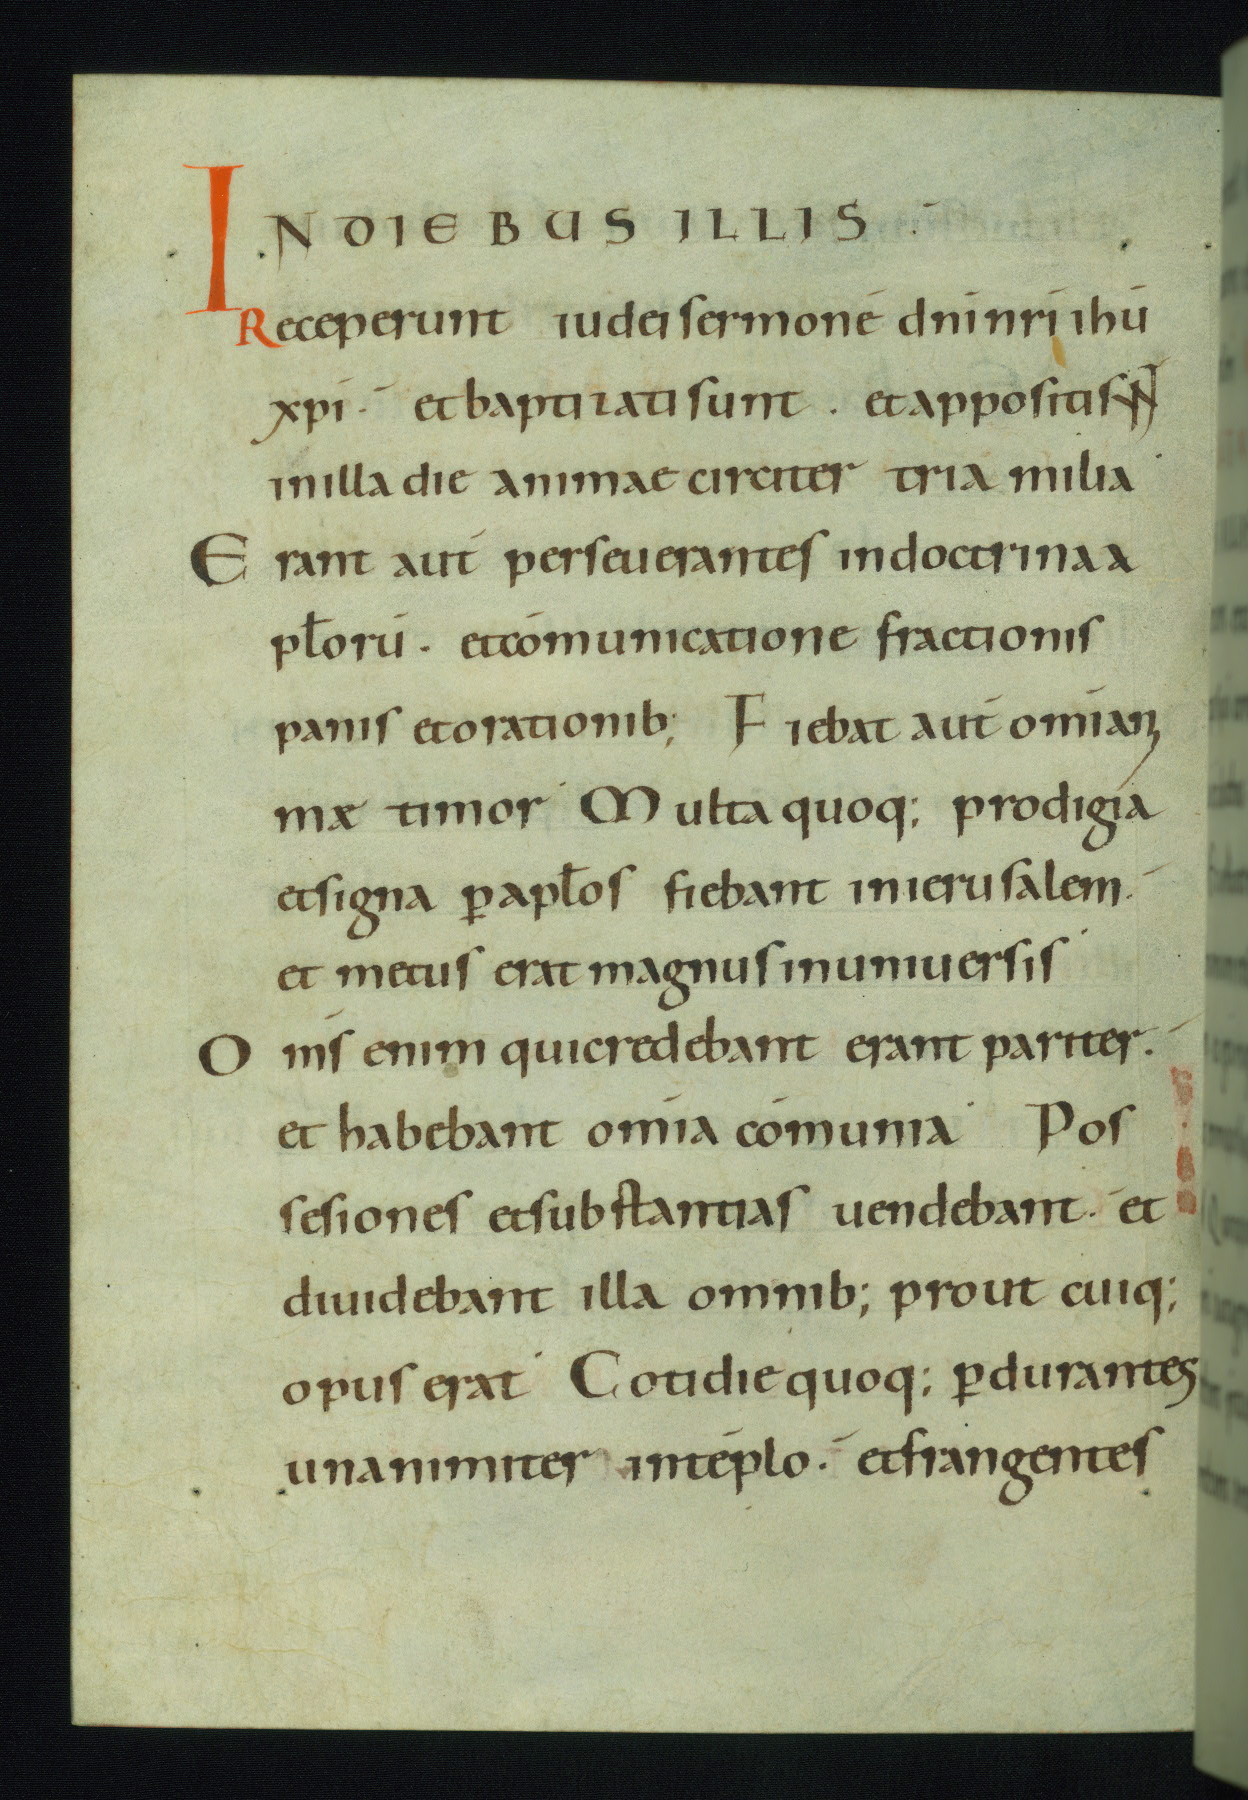 IN DIEBUS ILLIS ·
Receperunt iudei sermonē dnī nrī ihū
xpī · et baptizati sunt · et appositi sNT
in illa die animae circiter tria milia ·
Erant aut̄ perseuerantes in doctrina a
pl̄orū · et cōmunicatione fractionis
panis et orationib; Fiebat aut̄ om̄i an
mæ timor · Multa quoq; prodigia
et signa ꝑ apl̄os fiebant in ierusalem ·
et metus erat magnus in uniuersis ·
Om̄s enim qui credebant erant pariter ·
et habebant om̄ia cōmunia · Pos
sesiones et substantias uendebant · et
diuidebant illa omnib; prout cuiq;
opus erat · Cotidie quoq; ꝑdurantes
unanimiter in tēplo · et frangentes